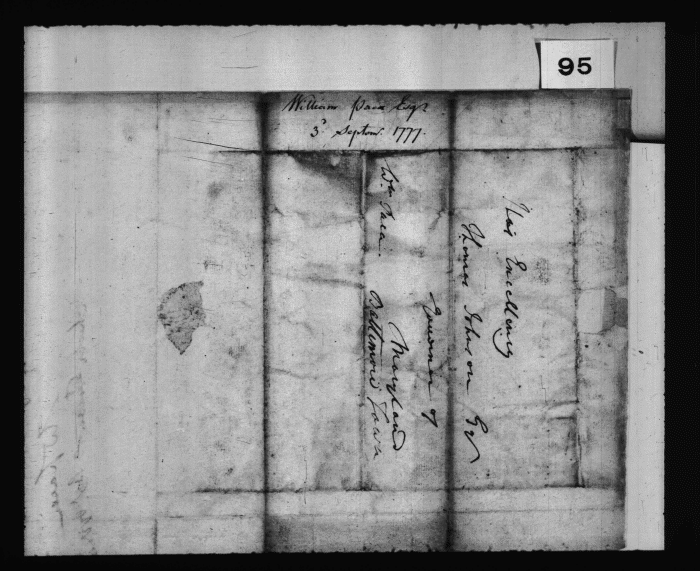 95
William Paca Esqr
3d Septem. 1777.
His Excellency
Thomas Johnson Esqr
Governor of
Maryland
Baltimore Town
Wm Paca.